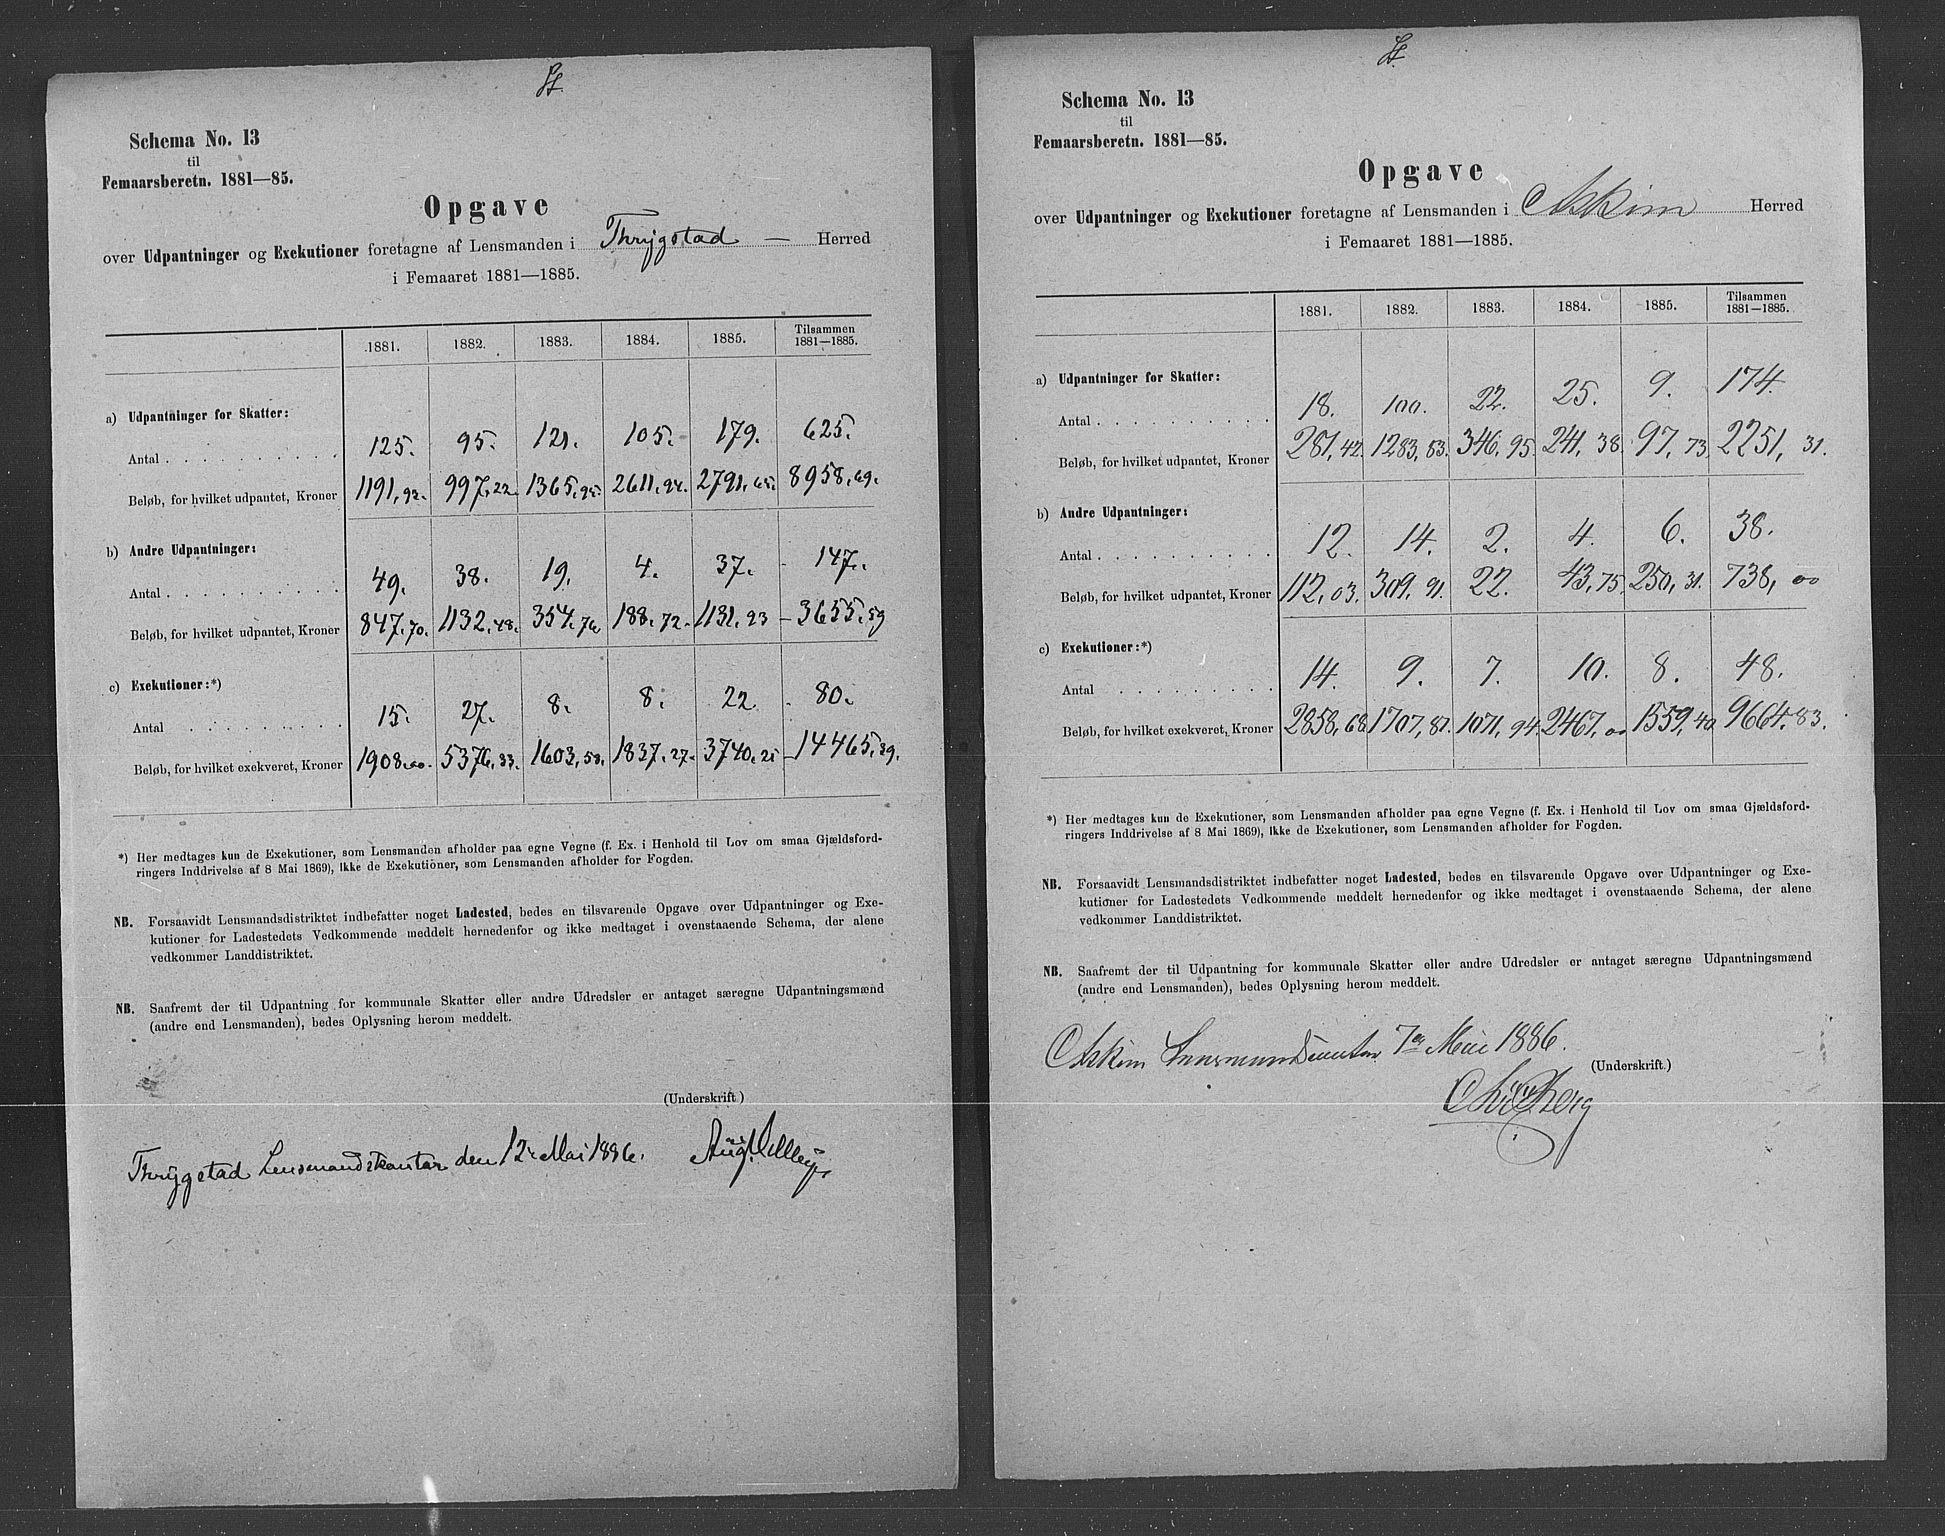 Schema No. 13
til
Femaarsberetn. 1881—85.
Opgave
over Udpantninger og Exekutioner foretagne af Lensmanden i Thrygstad — Herred
i Femaaret 1881—1885.
1881. 1882. 1883. 1884. 1885. Tilsammen 1881—1885.
a) Udpantninger for Skatter:
Antal . . . . . . . . . . 125. 95. 121. 105. 179. 625.
Beløb, for hvilket udpantet, Kroner 1191,92. 997,22. 1365,95. 2611,94. 2791,65. 8958,69.
b) Andre Udpantninger:
Antal . . . . . . . . . . 49. 38. 19. 4. 37. 147.
Beløb, for hvilket udpantet, Kroner 847,70. 1132,48. 354,76 188,72 1131,93 3655,59
c) Exekutioner:*)
Antal . . . . . . . . 15. 27. 8. 8. 22 80.
Beløb, for hvilket exekveret, Kroner 1908,00. 5376,33. 1603,53. 1837,27. 3740,25 14465,39.
*) Her medtages kun de Exekutioner, som Lensmanden afholder paa egne Vegne (f. Ex. i Henhold til Lov om smaa Gjældsford-
ringers Inddrivelse af 8 Mai 1869), ikke de Exekutioner, som Lensmanden afholder for Fogden.
NB. Forsaavidt Lensmandsdistriktet indbefatter noget Ladested, bedes en tilsvarende Opgave over Udpantninger og Exe-
kutioner for Ladestedets Vedkommende meddelt hernedenfor og ikke medtaget i ovenstaaende Schema, der alene
vedkommer Landdistriktet.
NB. Saafremt der til Udpantning for kommunale Skatter eller andre Udredsler er antaget særegne Udpantningsmænd
(andre end Lensmanden), bedes Oplysning herom meddelt.
(Underskrift)
Thrygstad Lensmandskontor den 12. Mai 1886.
Schema No. 13
til
Femaarsberetn. 1881—85.
Opgave
over Udpantninger og Exekutioner foretagne af Lensmanden i Askim Herred
i Femaaret 1881—1885.
1881. 1882. 1883. 1884. 1885. Tilsammen 1881—1885.
a) Udpantninger for Skatter:
Antal . . . . . . . . . . 18. 100. 22. 25. 9. 174.
Beløb, for hvilket udpantet, Kroner 281,42. 1283,83. 346,95. 241,38. 97,73 2251,31.
b) Andre Udpantninger:
Antal . . . . . . . . . . 12. 14. 2. 4. 6. 38.
Beløb, for hvilket udpantet, Kroner 112,03. 309,91. 22. 43,75. 250,31. 738,00
c) Exekutioner:*)
Antal . . . . . . . . 14. 9. 7. 10. 8. 48.
Beløb, for hvilket exekveret, Kroner 2858,68. 1707,81. 1071,94. 2467,00 1559,40 9664,83.
*) Her medtages kun de Exekutioner, som Lensmanden afholder paa egne Vegne (f. Ex. i Henhold til Lov om smaa Gjældsford-
ringers Inddrivelse af 8 Mai 1869), ikke de Exekutioner, som Lensmanden afholder for Fogden.
NB. Forsaavidt Lensmandsdistriktet indbefatter noget Ladested, bedes en tilsvarende Opgave over Udpantninger og Exe-
kutioner for Ladestedets Vedkommende meddelt hernedenfor og ikke medtaget i ovenstaaende Schema, der alene
vedkommer Landdistriktet.
NB. Saafremt der til Udpantning for kommunale Skatter eller andre Udredsler er antaget særegne Udpantningsmænd
(andre end Lensmanden), bedes Oplysning herom meddelt.
Askim Lensmandskontor 7de Mai 1886.
(Underskrift)